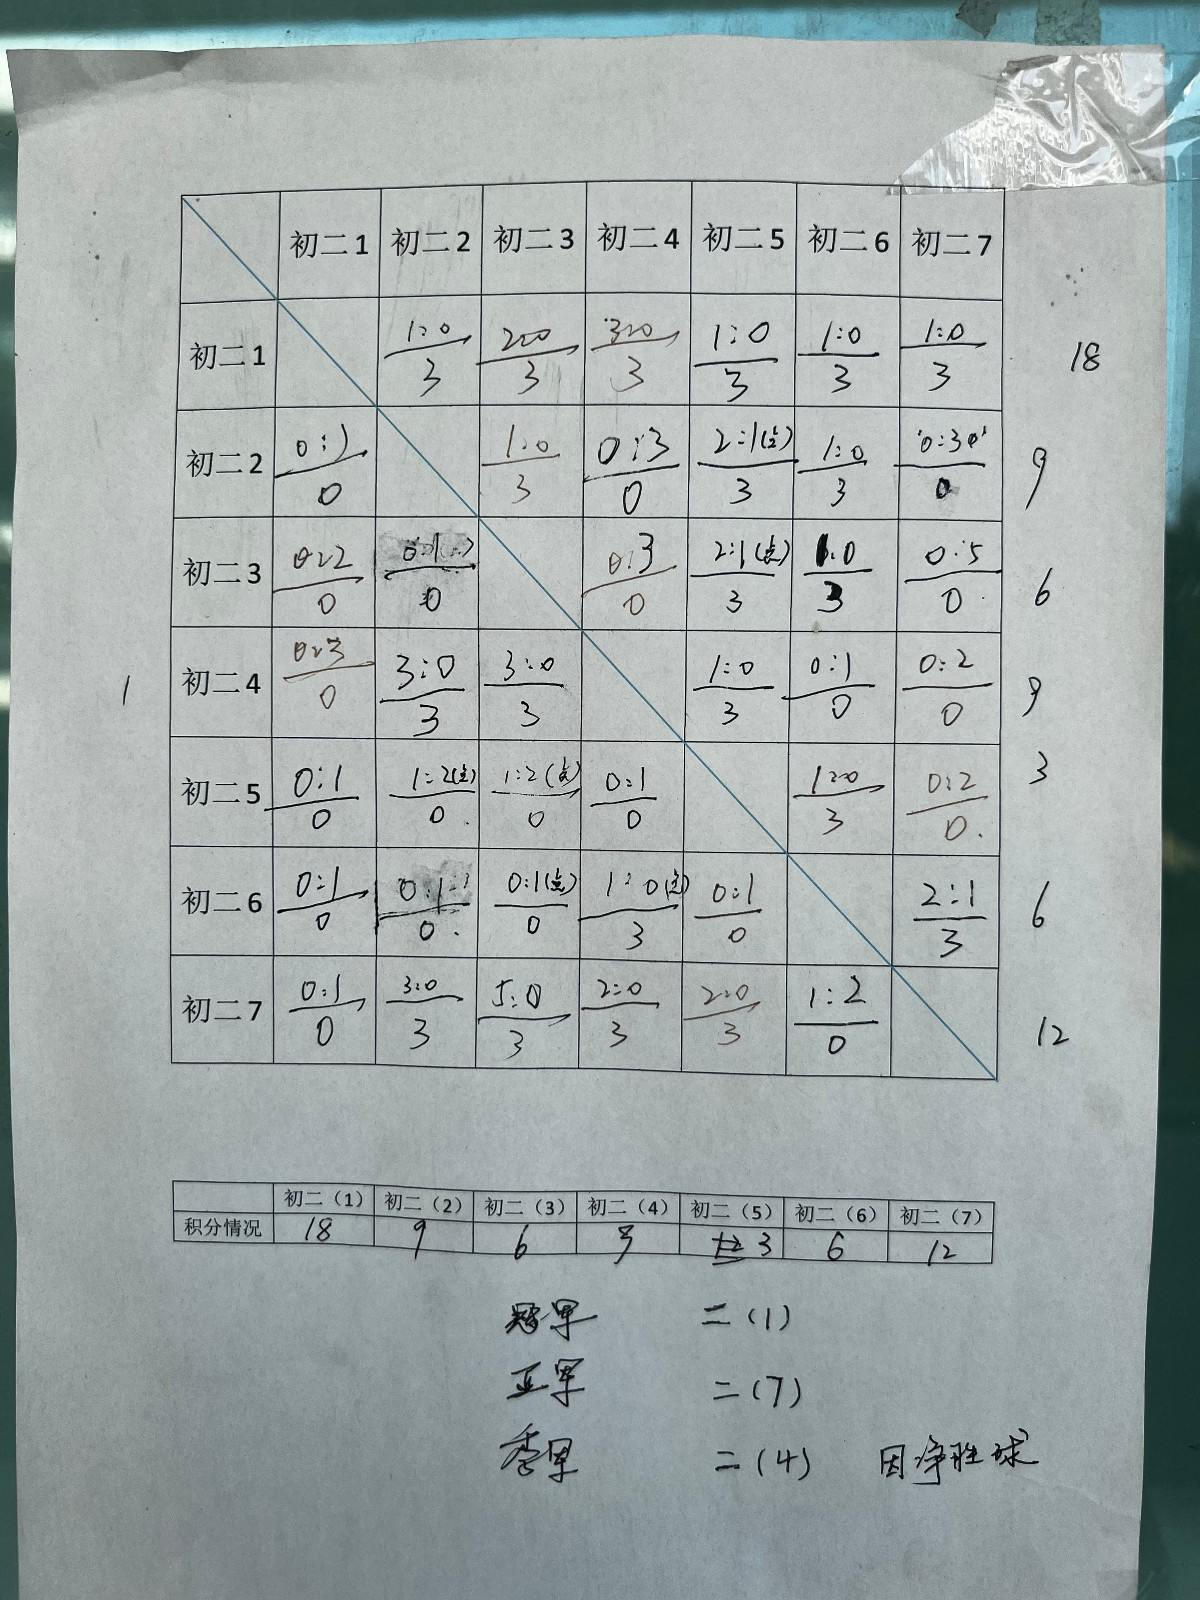 初二1 初二2 初二3 初二4 初二5 初二6 初二7
初二1 1:0 2:0 3:0 1:0 1:0 1:0
3 3 3 3 3 3 18
初二2 0:1 1:0 0:3 2:1(点) 1:0 0:3
0 3 0 3 3 0 9
初二3 0:2 0:1 0:3 2:1(点) 1:0 0:5
0 0 0 3 3 0 6
初二4 0:3 3:0 3:0 1:0 0:1 0:2
1 0 3 3 3 0 0 9
初二5 0:1 1:2(点) 1:2(点) 0:1 1:0 0:2 3
0 0 0 0 3 0
初二6 0:1 0:1 0:1(点) 1:0(点) 0:1 2:1
0 0 0 3 0 3 6
初二7 0:1 3:0 5:0 2:0 2:0 1:2
0 3 3 3 3 0 12
初二(1) 初二(2) 初二(3) 初二(4) 初二(5) 初二(6) 初二(7)
积分情况 18 9 6 9 3 6 12
冠军 二(1)
亚军 二(7)
季军 二(4) 因净胜球